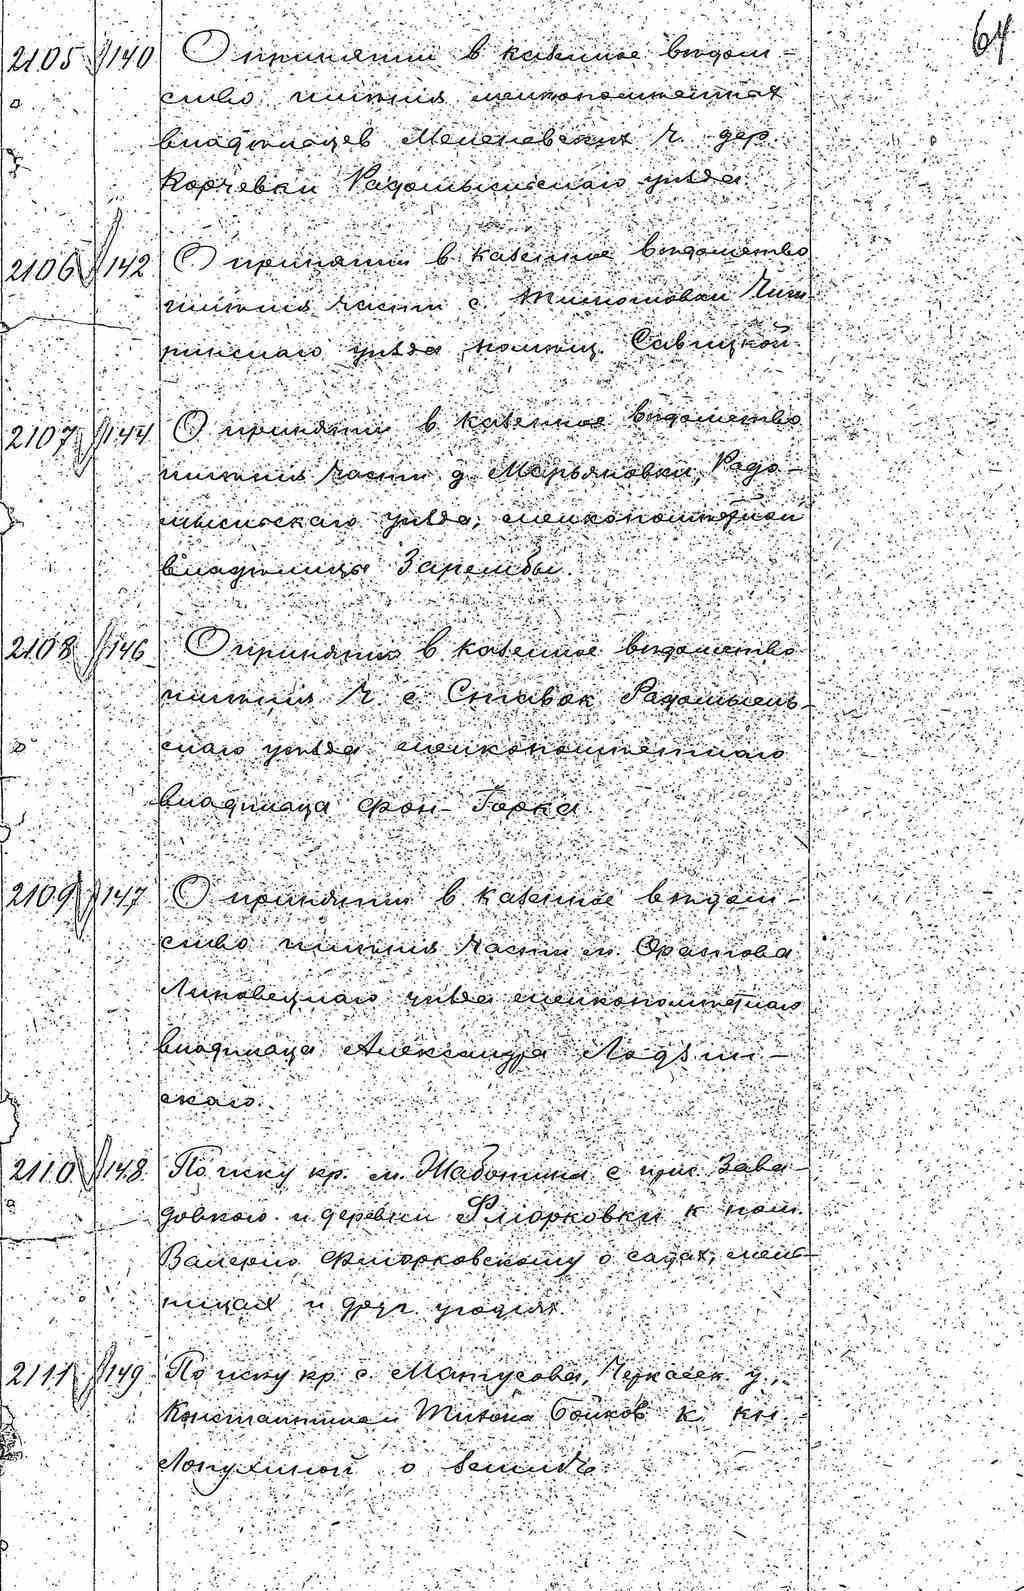 64
2105 140 О принятии в казенное ведом-
ство имения мелкопоместных
владельцев Мелехевских ч. дер.
Корчевки Радомысльскаго уезда
2106 142 О принятии в казенное ведомство
имения части с. Тимошовки Чиги-
ринскаго уезда помещ. Савицкой
2107 144 О принятии в казенное ведомство
имения части д. Марьяновки, Радо-
мысльскаго уезда, мелкопоместной
владелицы Зарембы.
2108 146 О принятии в казенное ведомство
имения ч. с. Ставок Радомысль-
скаго уезда мелкопоместнаго
владельца фон-Горка
2109 147 О принятии в казенное ведом-
ство имения части м. Оратова
Липовецкаго уезда мелкопоместнаго
владельца Александра Лодзин-
скаго.
2110 148 По иску кр. м. Жаботина с прис. Зава-
довкою и деревни Флюрковки к пом.
Валерию Флиорковскому о садах, мель-
ницах и друг. угодиях.
2111 149 По иску кр. с. Матусова, Черкасск. у.,
Константина и Тихона Бойков к кн.
Лопухиной о земле